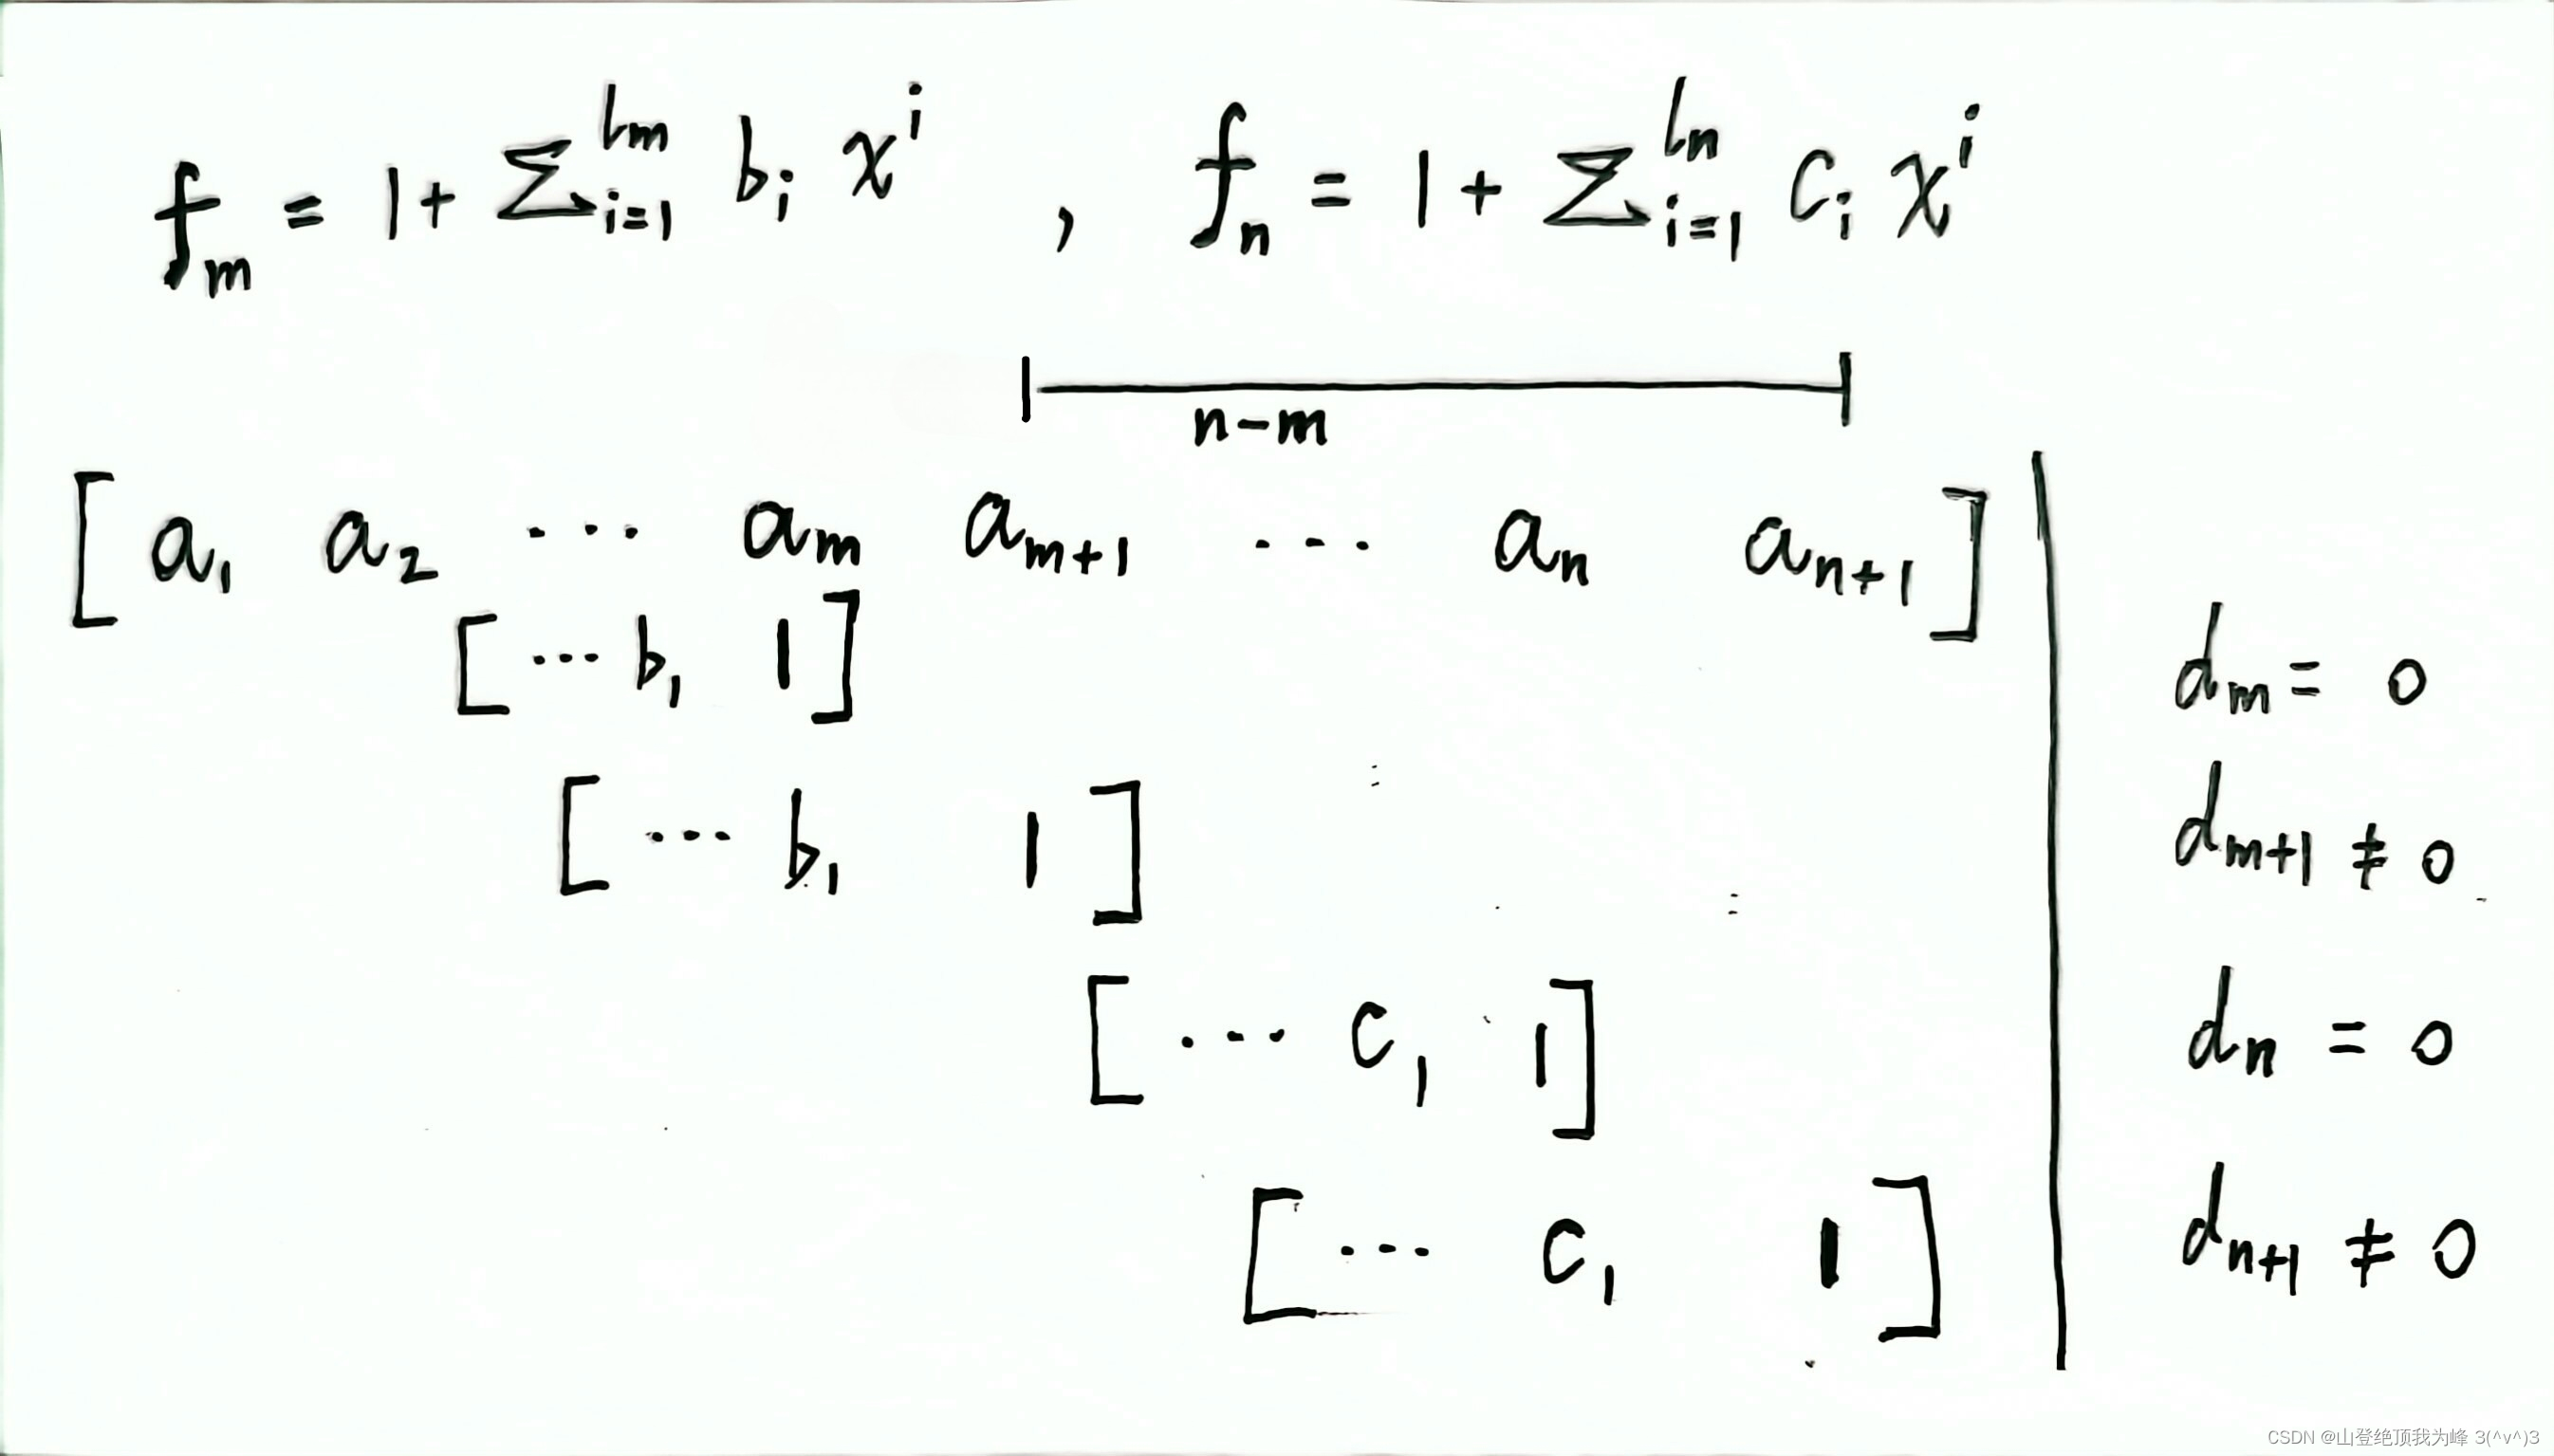 f_m = 1 + Σ_{i=1}^{l_m} b_i x^i , f_n = 1 + Σ_{i=1}^{l_n} c_i x^i
n-m
[ a_1 a_2 ... a_m a_{m+1} ... a_n a_{n+1} ]
[ ... b_1 1 ] d_m = 0
[ ... b_1 1 ] d_{m+1} ≠ 0
[ ... c_1 1 ] d_n = 0
[ ... c_1 1 ] d_{n+1} ≠ 0
CSDN @山登绝顶我为峰 3(^v^)3